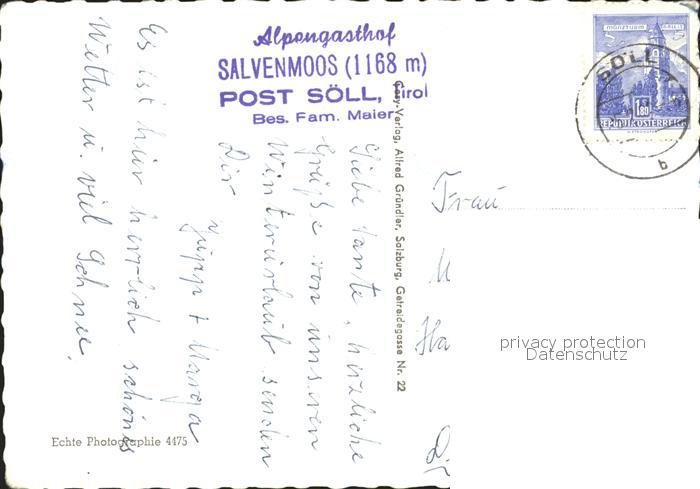 Alpengasthof
SALVENMOOS (1168 m)
POST SÖLL, Tirol
Bes. Fam. Maier
MÜNZTURM
1.80
REPUBLIK ÖSTERREICH
SÖLL
b
Cosy-Verlag, Alfred Gründler, Salzburg, Getreidegasse Nr. 22
Liebe Tante, herzliche
Grüße von unserem
Winterurlaub senden
Dir
Marga
Es ist hier herrlich schönes
Wetter u. viel Schnee.
Frau
Ha
privacy protection
Datenschutz
Echte Photographie 4475